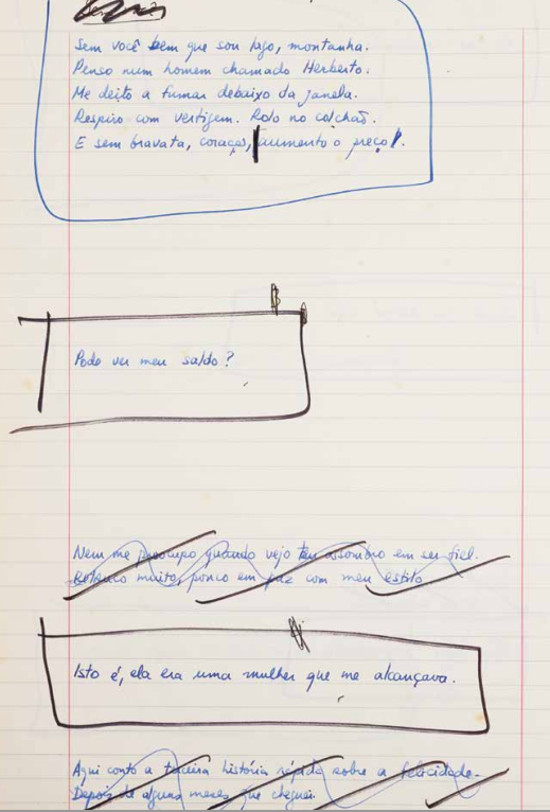 Sem você bem que sou lago, montanha.
Penso num homem chamado Herberto.
Me deito a fumar debaixo da janela.
Respiro com vertigem. Rolo no colchão.
E sem bravata, coração, aumento o preço.
Pode ver meu saldo?
Nem me preocupo quando vejo teu assombro em ser fiel.
muito, pouco em paz com meu estilo
Isto é, ela era uma mulher que me alcançava.
Aqui conto a terceira história rápida sobre a felicidade.
Depois de alguns meses que cheguei